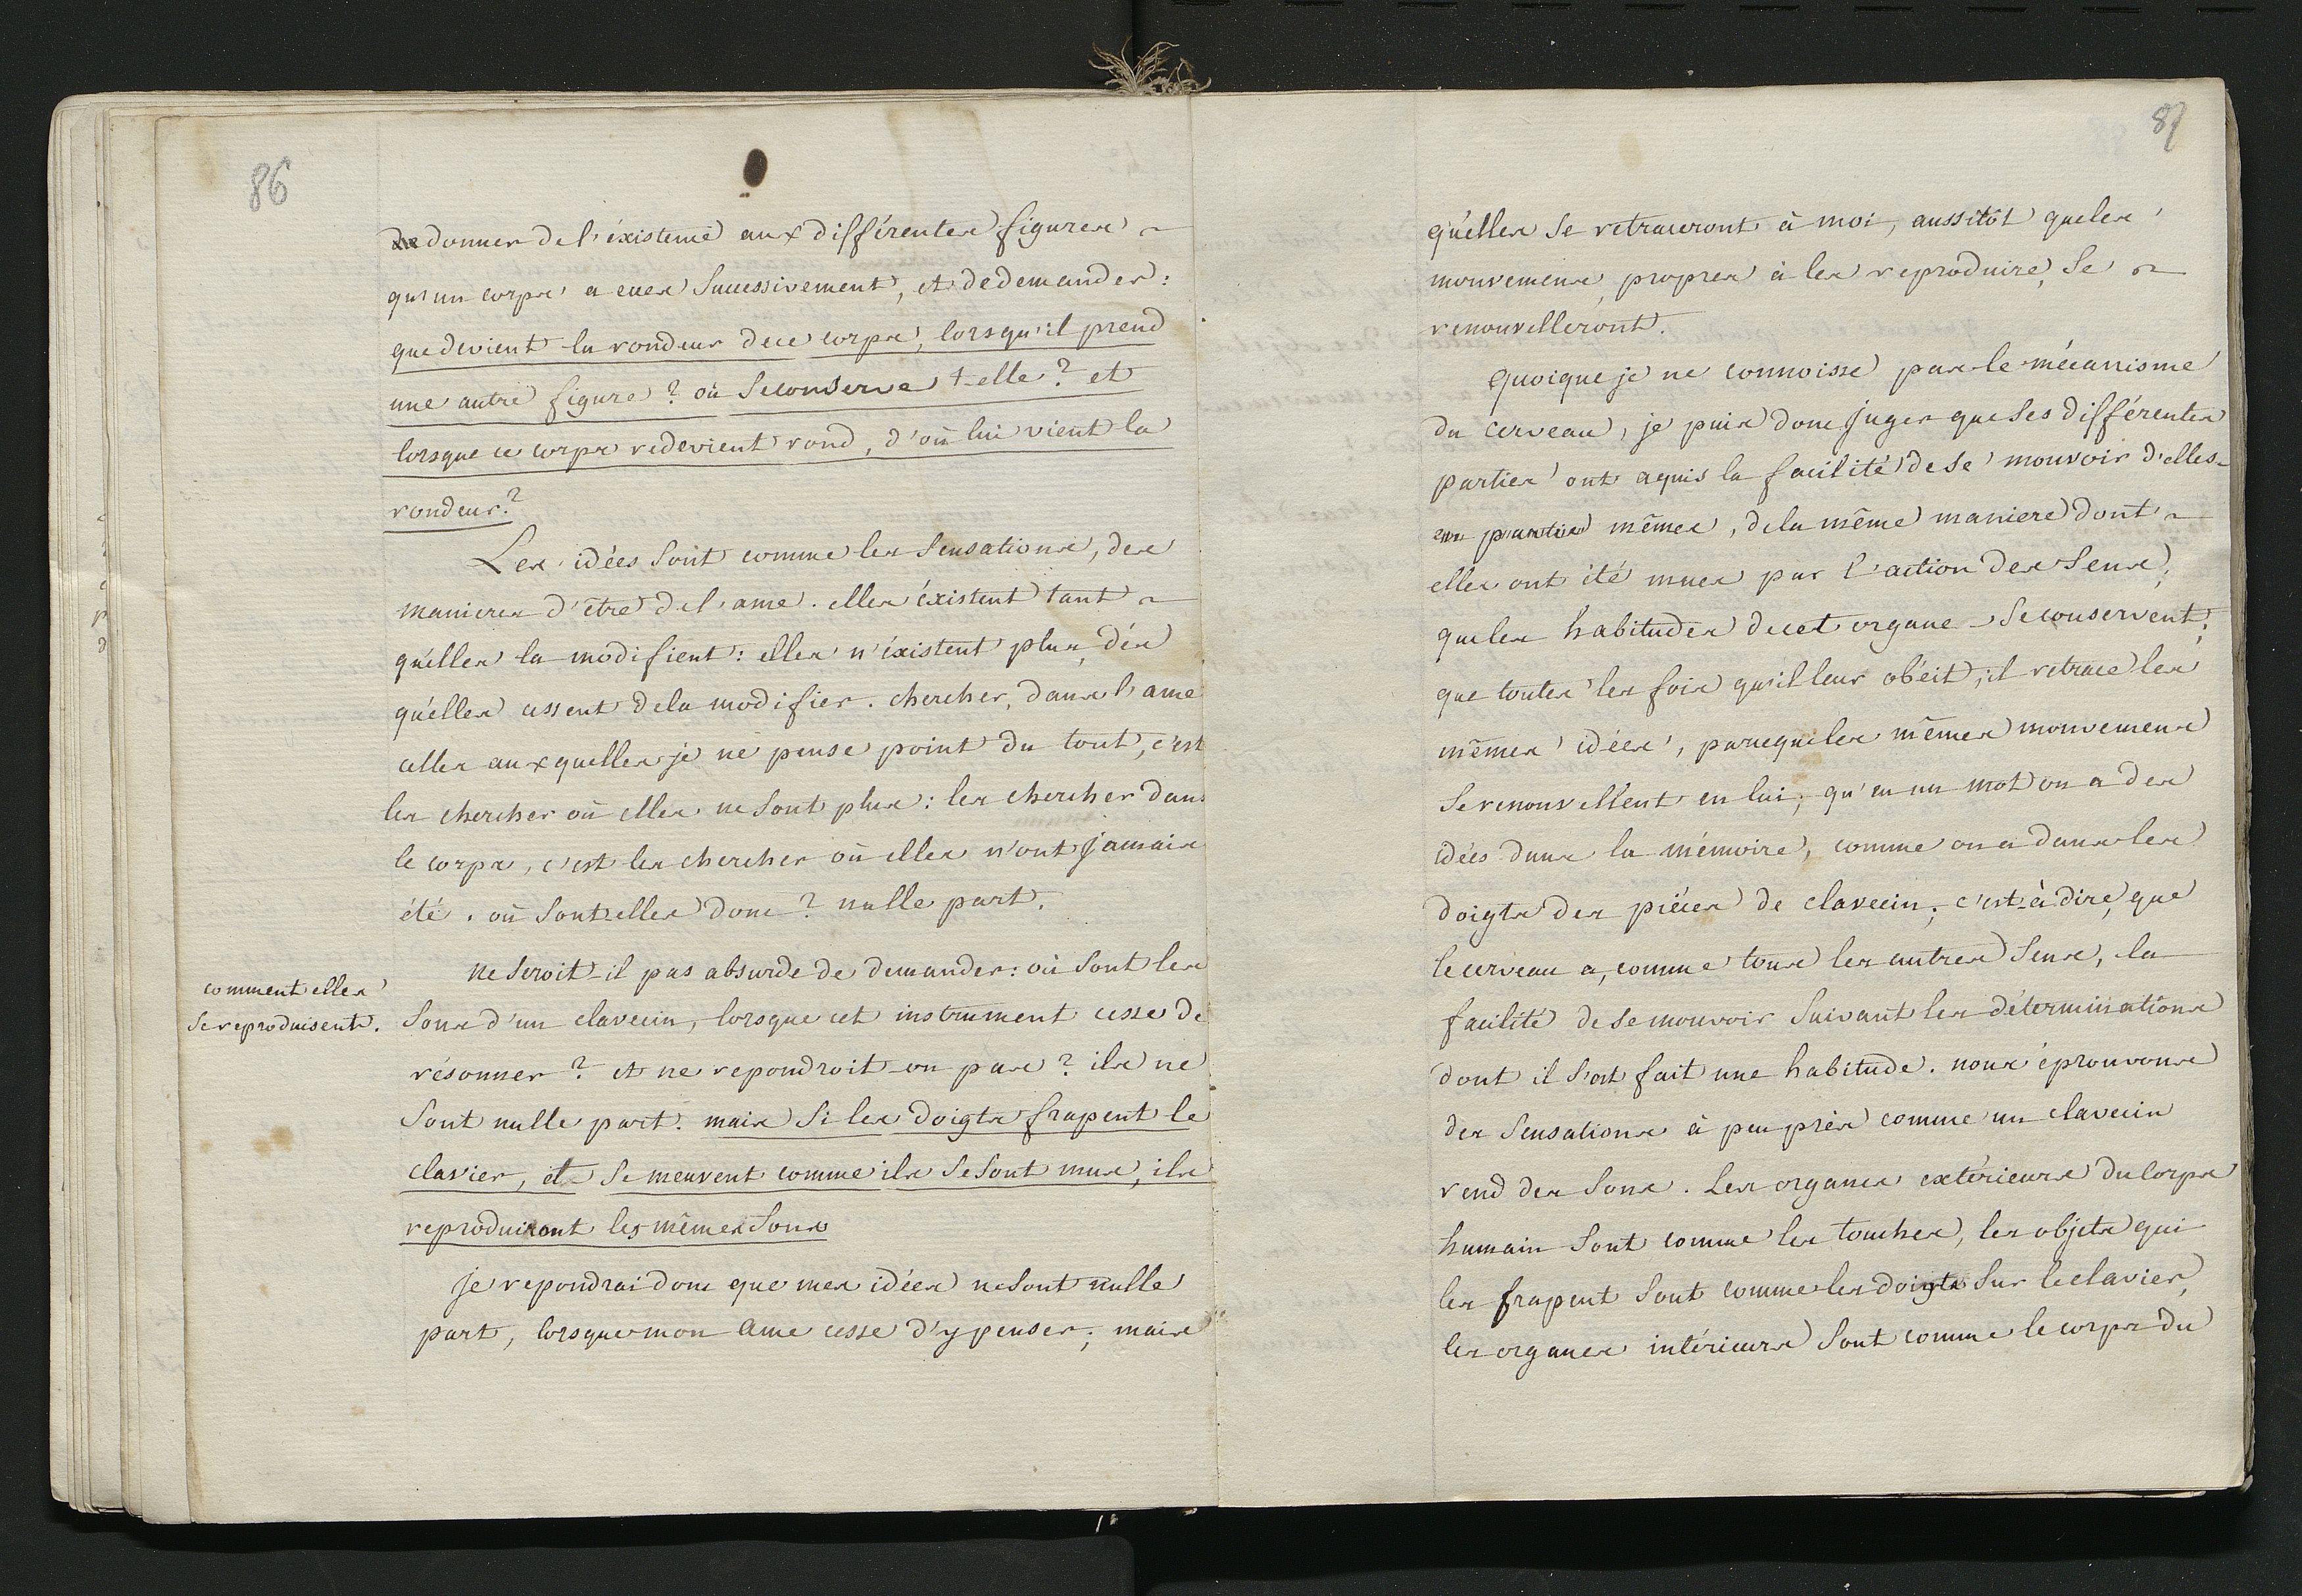 86
donner de l'éxistence aux différentes figures
qu'un corps a eues Successivement, et de demander:
que devient la rondeur de ce corps, lorsqu'il prend
une autre figure? où Se conserve t-elle? et
lorsque ce corps redevient rond, d'où lui vient la
rondeur?
Les idées Sont comme les Sensations, des
manieres d'être de l'ame. elles éxistent tant
qu'elles la modifient: elles n'éxistent plus, dès
qu'elles cessent de la modifier. chercher, dans l'ame
celles auxquelles je ne pense point du tout, c'est
les chercher où elles ne Sont plus: les chercher dans
le corps, c'est les chercher où elles n'ont jamais
été. où Sont-elles donc? nulle part.
comment elles
Se reproduisent.
ne Seroit-il pas absurde de demander: où Sont les
Sons d'un clavecin, lorsque cet instrument cesse de
résonner? et ne repondroit-on pas? ils ne
Sont nulle part. mais Si les doigts frapent le
clavier, et Se meuvent comme ils Se Sont mus, ils
reproduiront les mêmes Sons
je repondrai donc que mes idées ne Sont nulle
part, lorsque mon ame cesse d'y penser; mais
87
qu'elles Se retraceront à moi, aussitôt que les
mouvemens, propres à les reproduire, Se
renouvelleront.
Quoique je ne connoisse pas le mécanisme
du cerveau, je puis donc juger que Ses différentes
parties ont aquis la facilité de Se mouvoir d'elles-
mêmes, de la même maniere dont
elles ont été mues par l'action des Sens;
que les habitudes de cet organe Se conservent;
que toutes les fois qu'il leur obéit, il retrace les
mêmes idées, parceque les mêmes mouvemens
Se renouvellent en lui; qu'en un mot on a des
idées dans la mémoire, comme on a dans les
doigts des piéces de clavecin; c'est-à-dire, que
le cerveau a, comme tous les autres Sens, la
facilité de Se mouvoir Suivant les déterminations
dont il S'est fait une habitude. nous éprouvons
des Sensations à peu près comme un clavecin
rend des Sons. Les organes extérieurs du Corps
humain Sont comme les touches, les objets qui
les frapent Sont comme les doigts Sur le clavier,
les organes intérieurs Sont comme le corps du